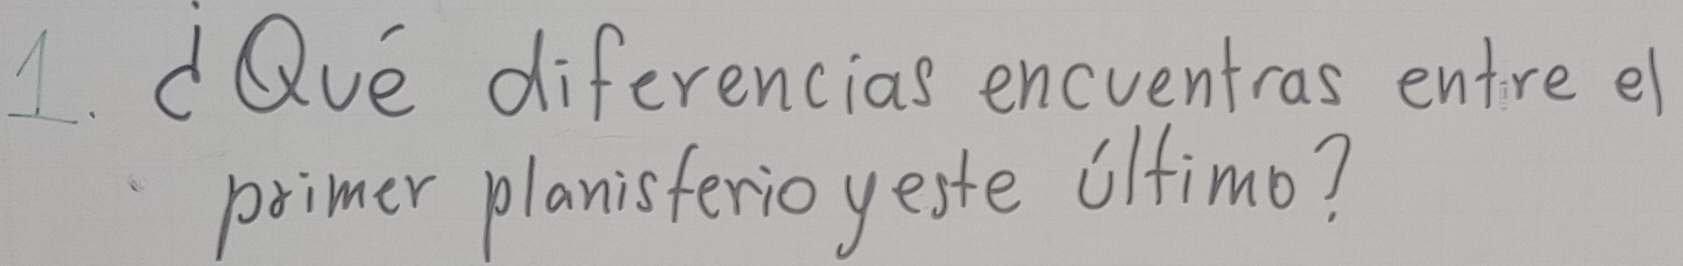 1. ¿Qué diferencias encuentras entre el
primer planisferio y este último?